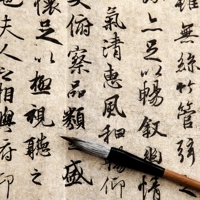 雖無絲竹管弦
足以暢敘幽情
氣清惠風和暢仰
俯察品類盛
懷足以極視聽之
夫人之相與俯仰